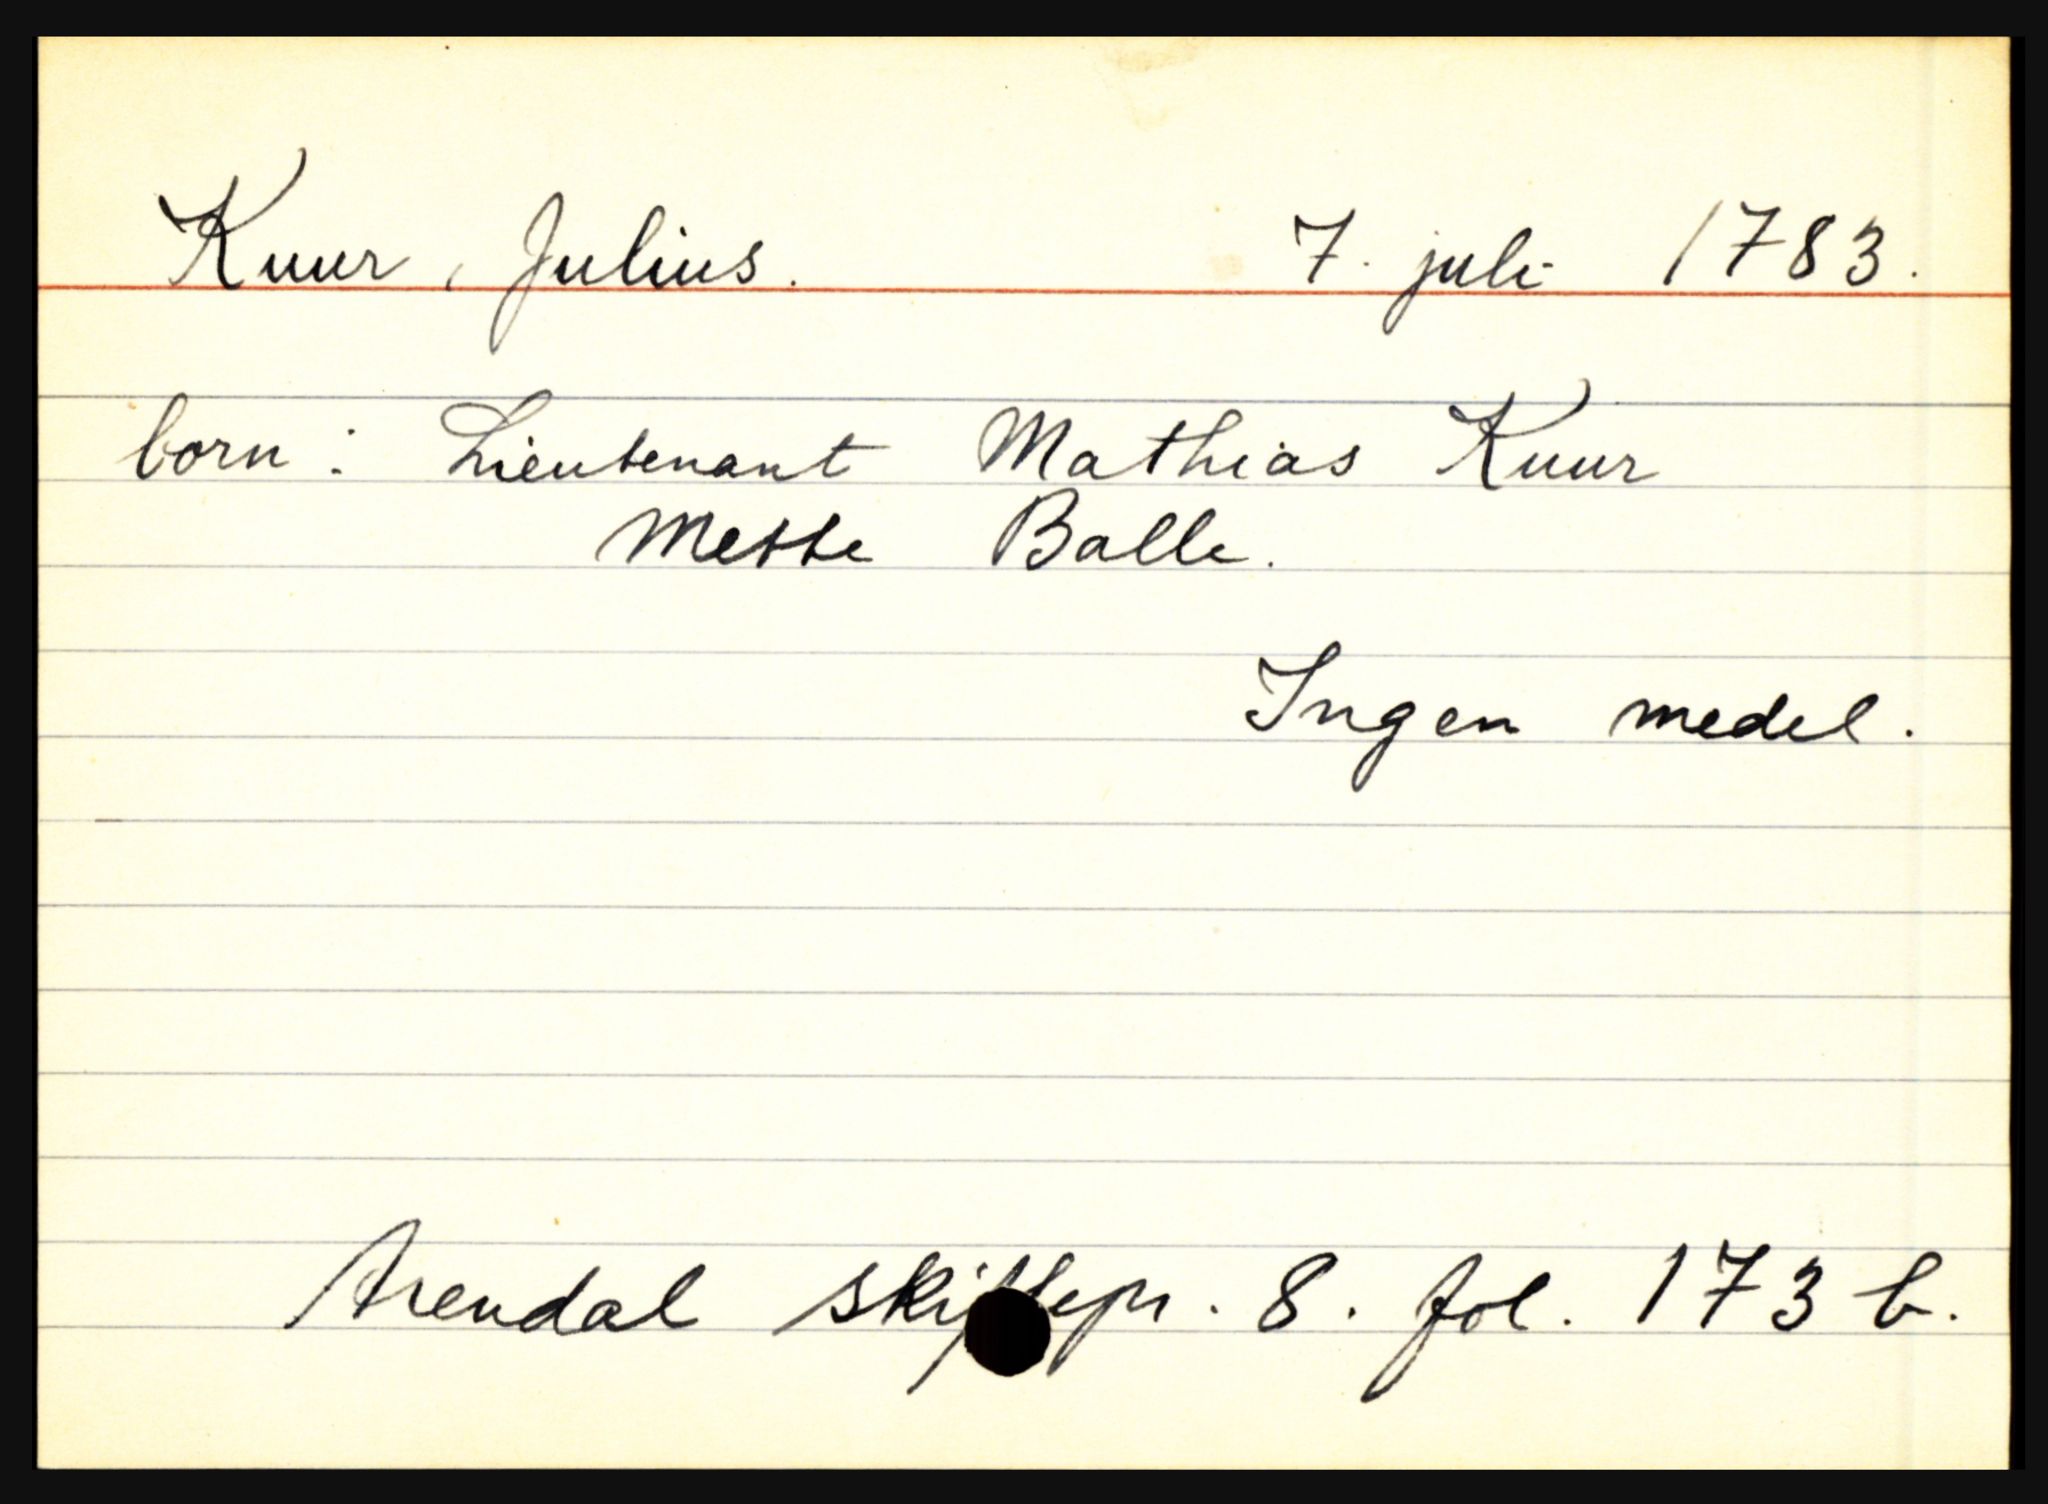 Kuur, Julius. 7. juli 1783.
born: Lieutenant Mathias Kuur
Mette Balle.
Ingen medel.
Arendal skiftepr. 8. fol. 173 b.